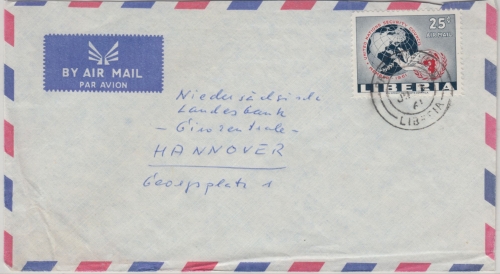 BY AIR MAIL
PAR AVION
25¢
AIR MAIL
UNITED NATIONS SECURITY
LIBERIA
LIBERIA
Niedersächsische
Landesbank
- Girozentrale -
HANNOVER
Georgsplatz 1